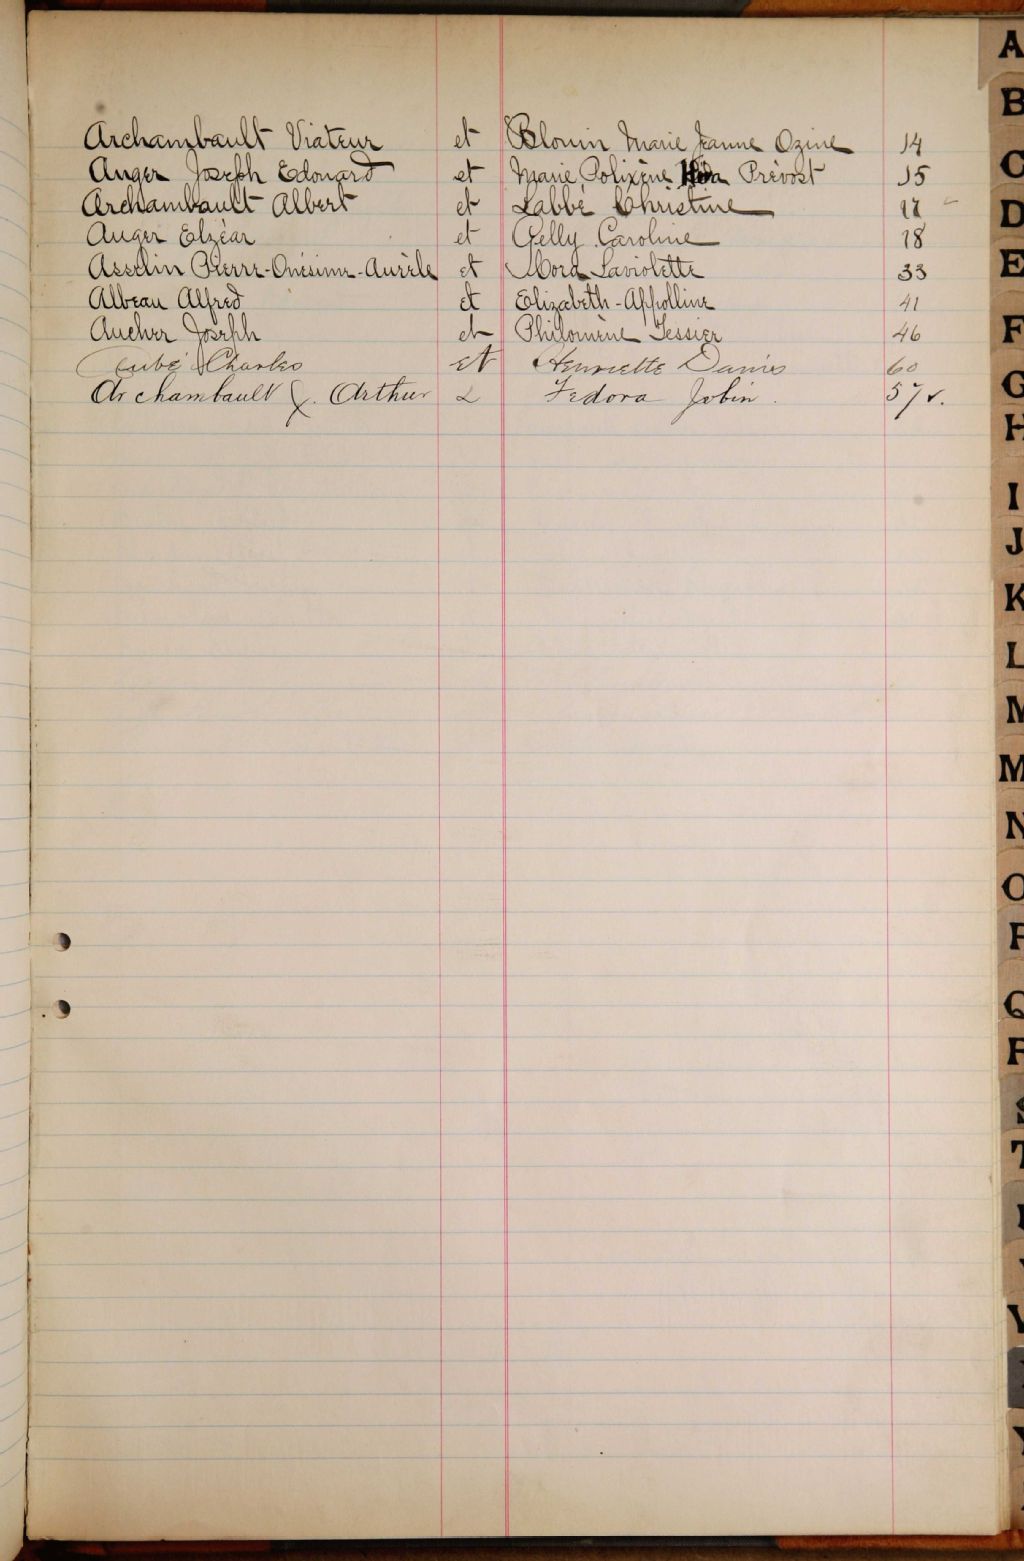 Archambault Viateur et Blouin Marie Jeanne Ozine 14
Auger Joseph Edouard et Marie Polixène Prévost 15
Archambault Albert et Labbé Christine 17
Auger Elzéar et Gelly Caroline 18
Asselin Pierre-Onésime-Aurèle et Nora Laviolette 33
Albeau Alfred et Elizabeth-Appolline 41
Aucher Joseph et Philomène Tessier 46
Aubé Charles et Henriette Davis 60
Archambault J. Arthur & Fedora Jobin. 57 v.
A
B
C
D
E
F
G
H
I
J
K
L
M
M
N
O
P
Q
R
S
T
V